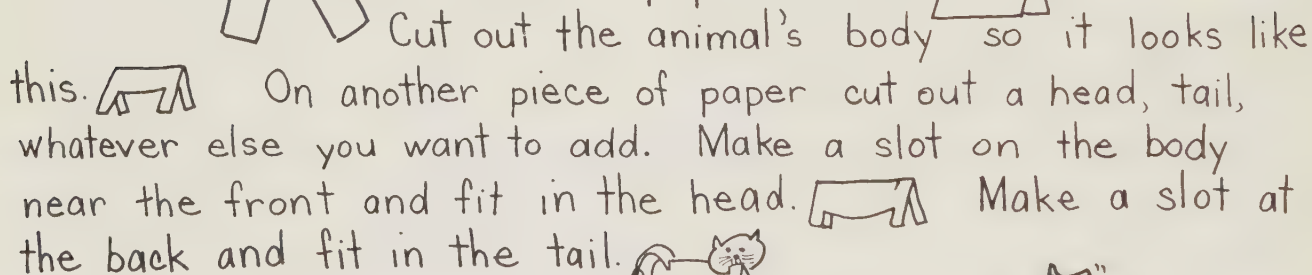 Cut out the animal's body so it looks like
this. On another piece of paper cut out a head, tail,
whatever else you want to add. Make a slot on the body
near the front and fit in the head. Make a slot at
the back and fit in the tail.